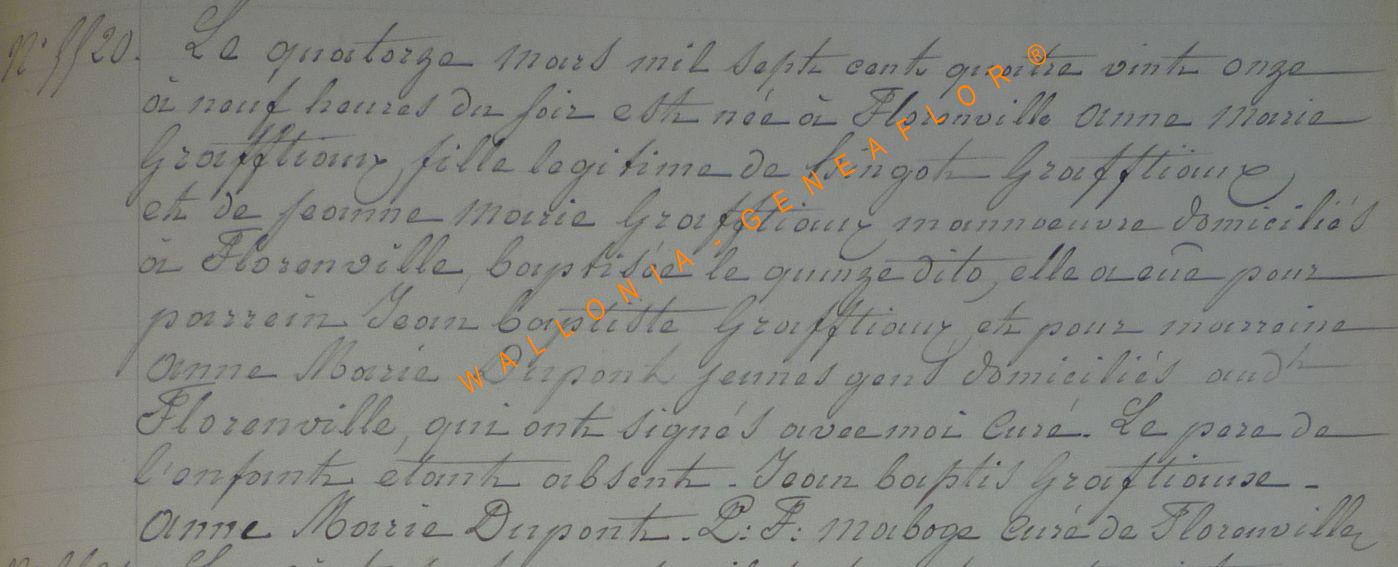 N° 5520. Le quatorze mars mil sept cent quatre vint onze
à neuf heures du soir est née à Florenville Anne Marie
Grafftiaux, fille legitime de Hingot Grafftiaux,
et de Jeanne Marie Grafftiaux mannoeuvre domiciliés
à Florenville, baptisée le quinze dito, elle a eûe pour
parrein Jean baptiste Grafftiaux et pour marreine
Anne Marie Dupont jeunes gens domiciliés audt
Florenville, qui ont signés avec moi Curé. Le pere de
l'enfant etant absent. Jean baptis Graftiause.
Anne Marie Dupont. P: F: maboge Curé de Florenville
WALLONIA.GENEAFLOR®